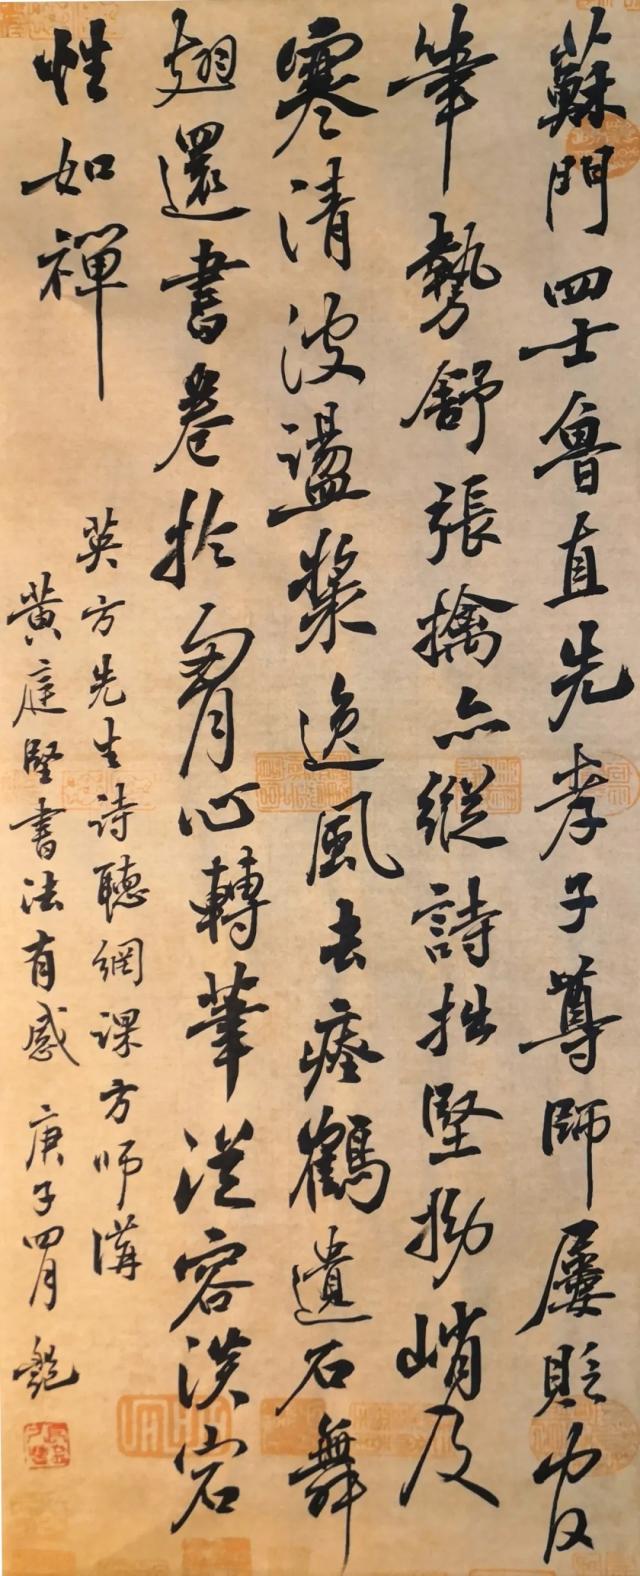 蘇門四士魯直先孝子尊師屢貶官
筆勢舒張擒亦縱詩拙堅拗峭及
寒清波盪槳逸風去瘞鶴遺石舞
翅還書卷於胷心轉筆從容淡宕
性如禪
英方先生詩聽網课方师講
黄庭堅書法有感 庚子四月